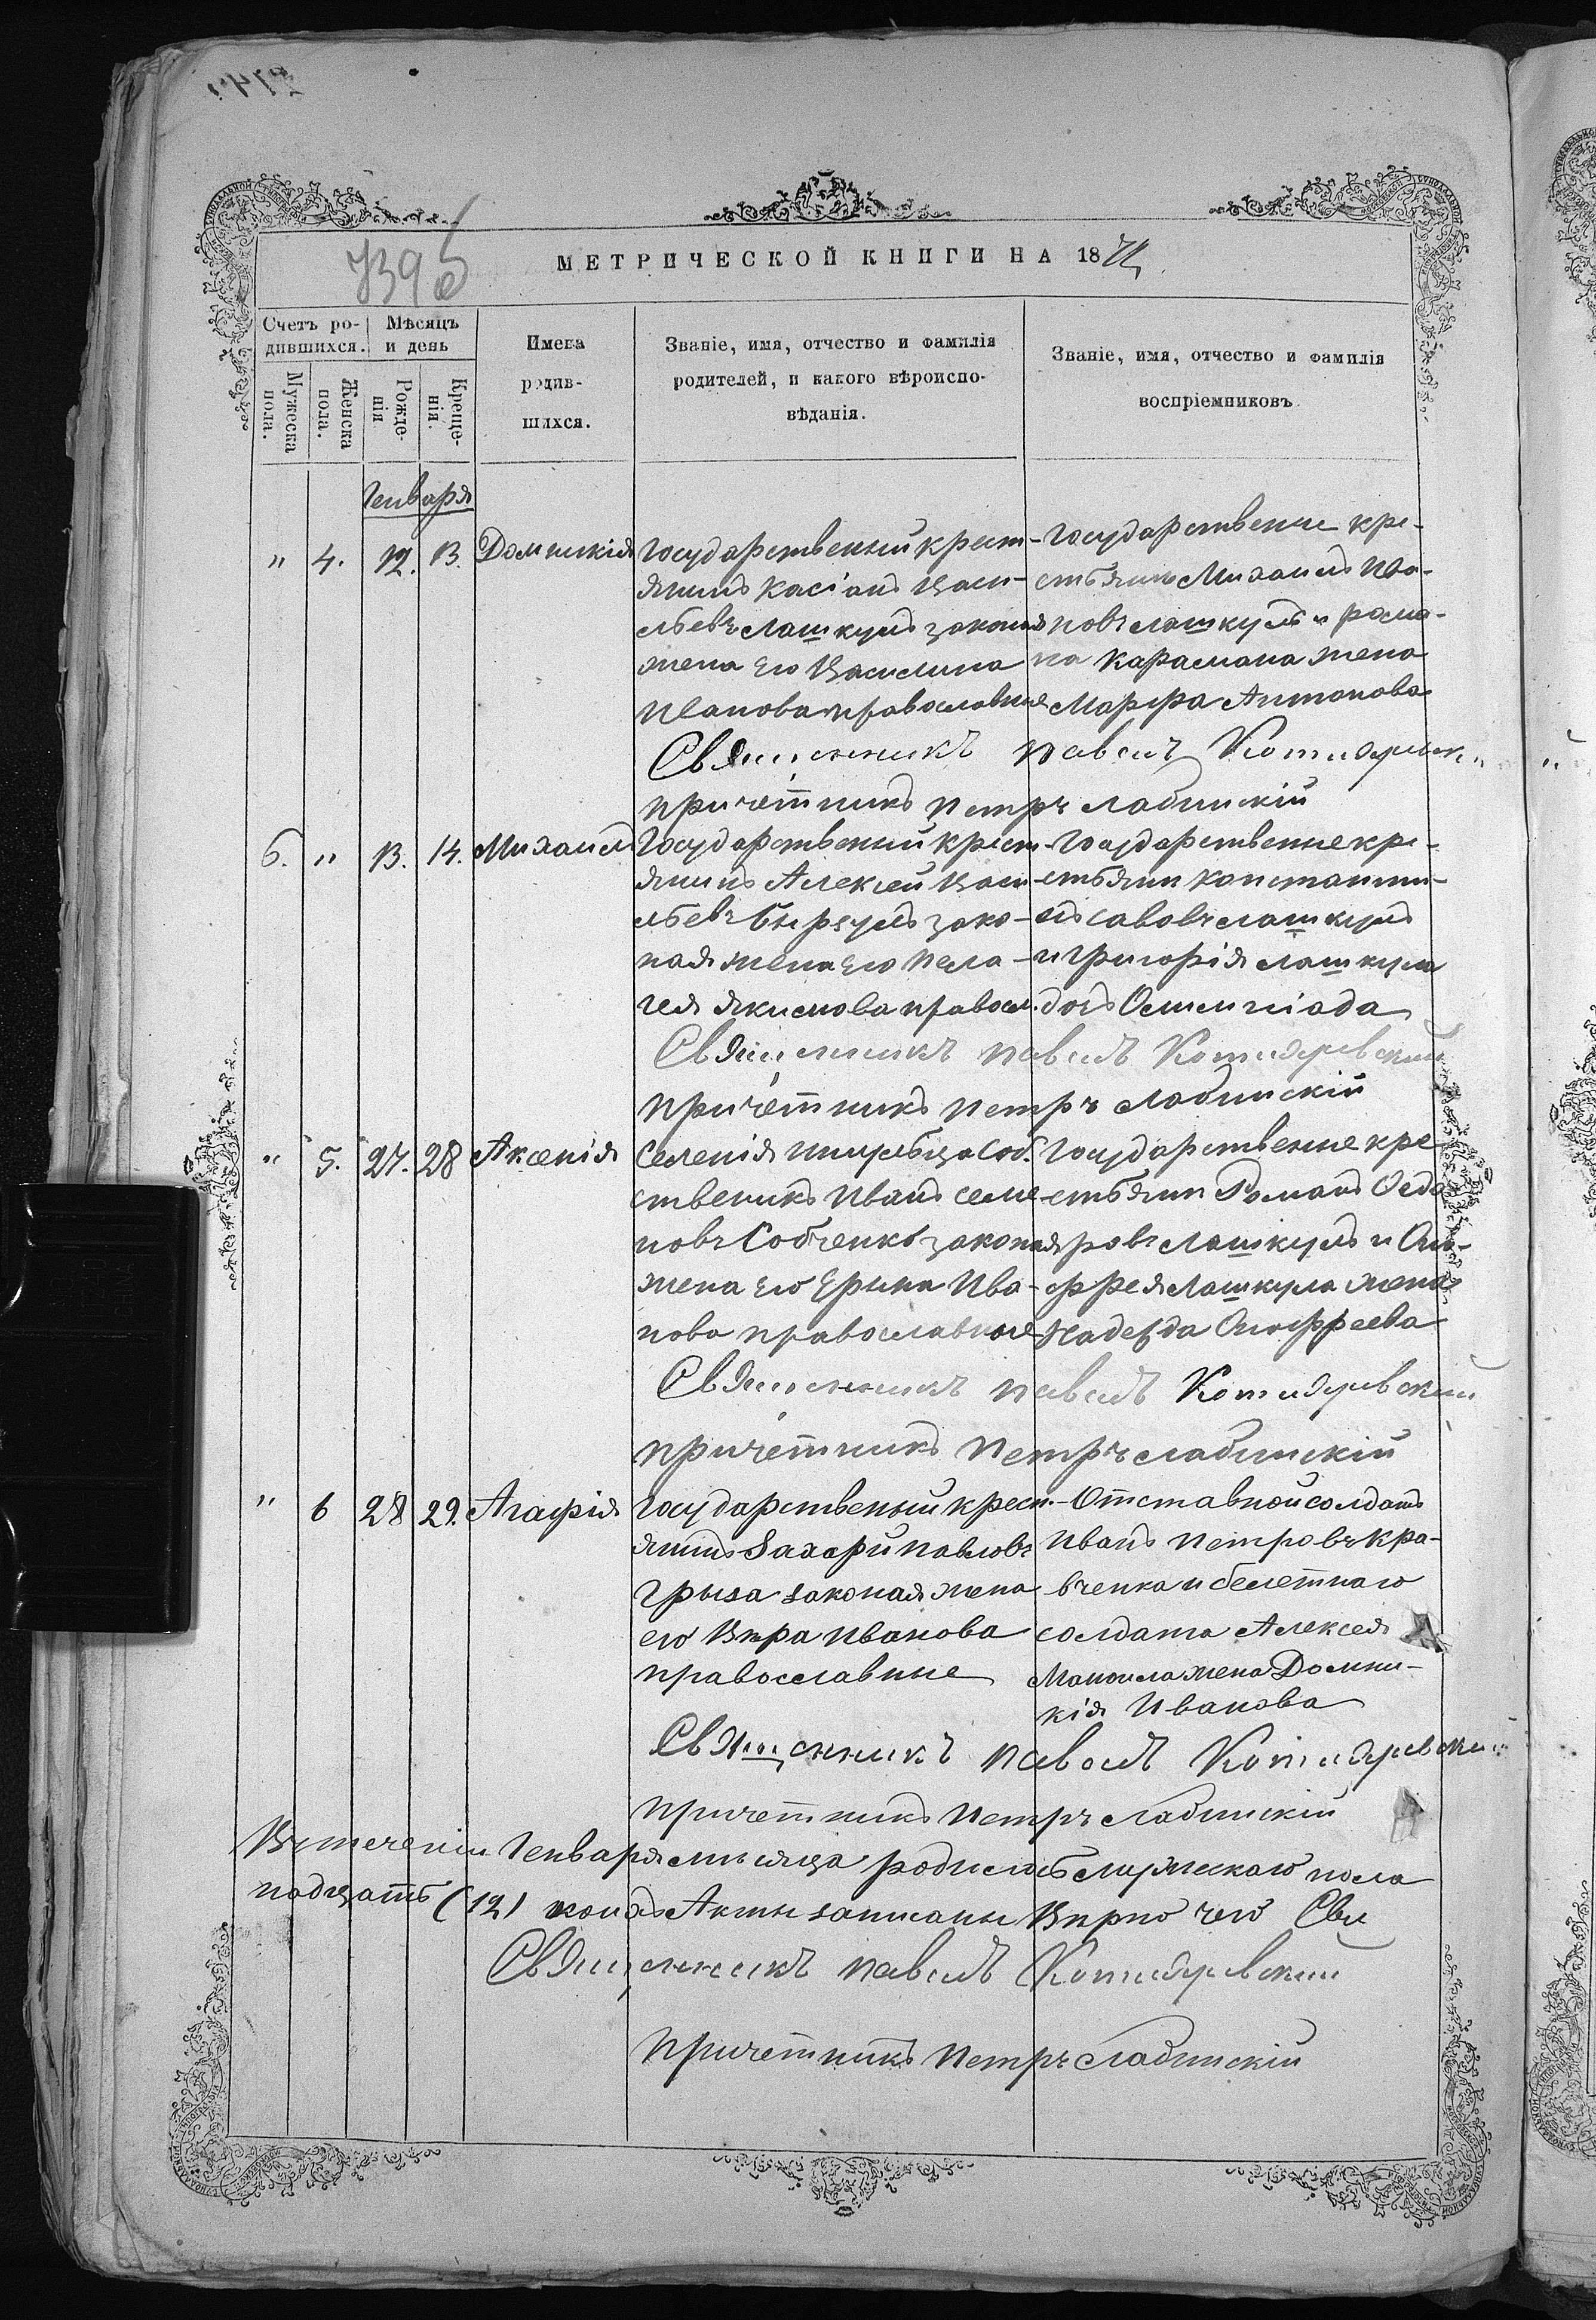 739б
МЕТРИЧЕСКОЙ КНИГИ НА 1871
Счетъ ро-
дившихся.
Мѣсяцъ
и день
Имена
родив-
шихся.
Званіе, имя, отчество и фамилія
родителей, и какого вѣроиспо-
вѣданія.
Званіе, имя, отчество и фамилія
воспріемниковъ
Мужеска
пола.
Женска
пола.
Рожде-
нія
Креще-
нія.
Генваря
" 4. 12. 13. Домникія
Государственый крест-
янинъ Касіанъ Васи-
льевъ Лашкулъ законая
жена его Василина
Иванова православные
Государственые кре-
стьянинъ Михаилъ Ива-
новъ Лашкулъ и рома-
на Карамана жена
Марфа Антонова
Священникъ Павелъ
Причетникъ Петръ Лабинскій
6. " 13. 14. Михаилъ
Государственый крест-
янинъ Алексей Васи-
льевъ зако-
ная жена его Пела-
гея Якимова правосл.
Государственые кре-
стьянин Константи-
нъ Савовъ Лашкулъ
и григорія Лашкула
дочь Олимпіада
Священникъ Павелъ Котляревский
Причетникъ Петръ Лабинскій
" 5. 27. 28 Аксенія
Селенія Соб.
ственикъ Иванъ Семе-
новъ Собченко законая
жена его Ерина Ива-
нова православные
Государственые кре-
стьянин Романъ Федо
ровъ Лашкулъ и Оно-
фрея Лашкула жена
Надежда Онофреева
Священникъ Павелъ Котляревский
Причетникъ Петръ Лабинскій
" 6 28 29. Агафія
Государственый крест.
янинъ Захарий Павловъ
Грыза законая жена
его Вѣра Иванова
православные
Отставной солдатъ
Иванъ Петровъ Кра-
вченко и белетнаго
солдата Алексея
Маноила жена Домни-
кія Иванова
Священникъ Павелъ Котляревский
Причетникъ Петръ Лабинскій
Въ течении Генваря мѣсяца родилось мужескаго пола
надцать (12) Акты записаны Вѣрно чего Сви
Священникъ Павелъ Котляревский
Причетникъ Петръ Лабинскій